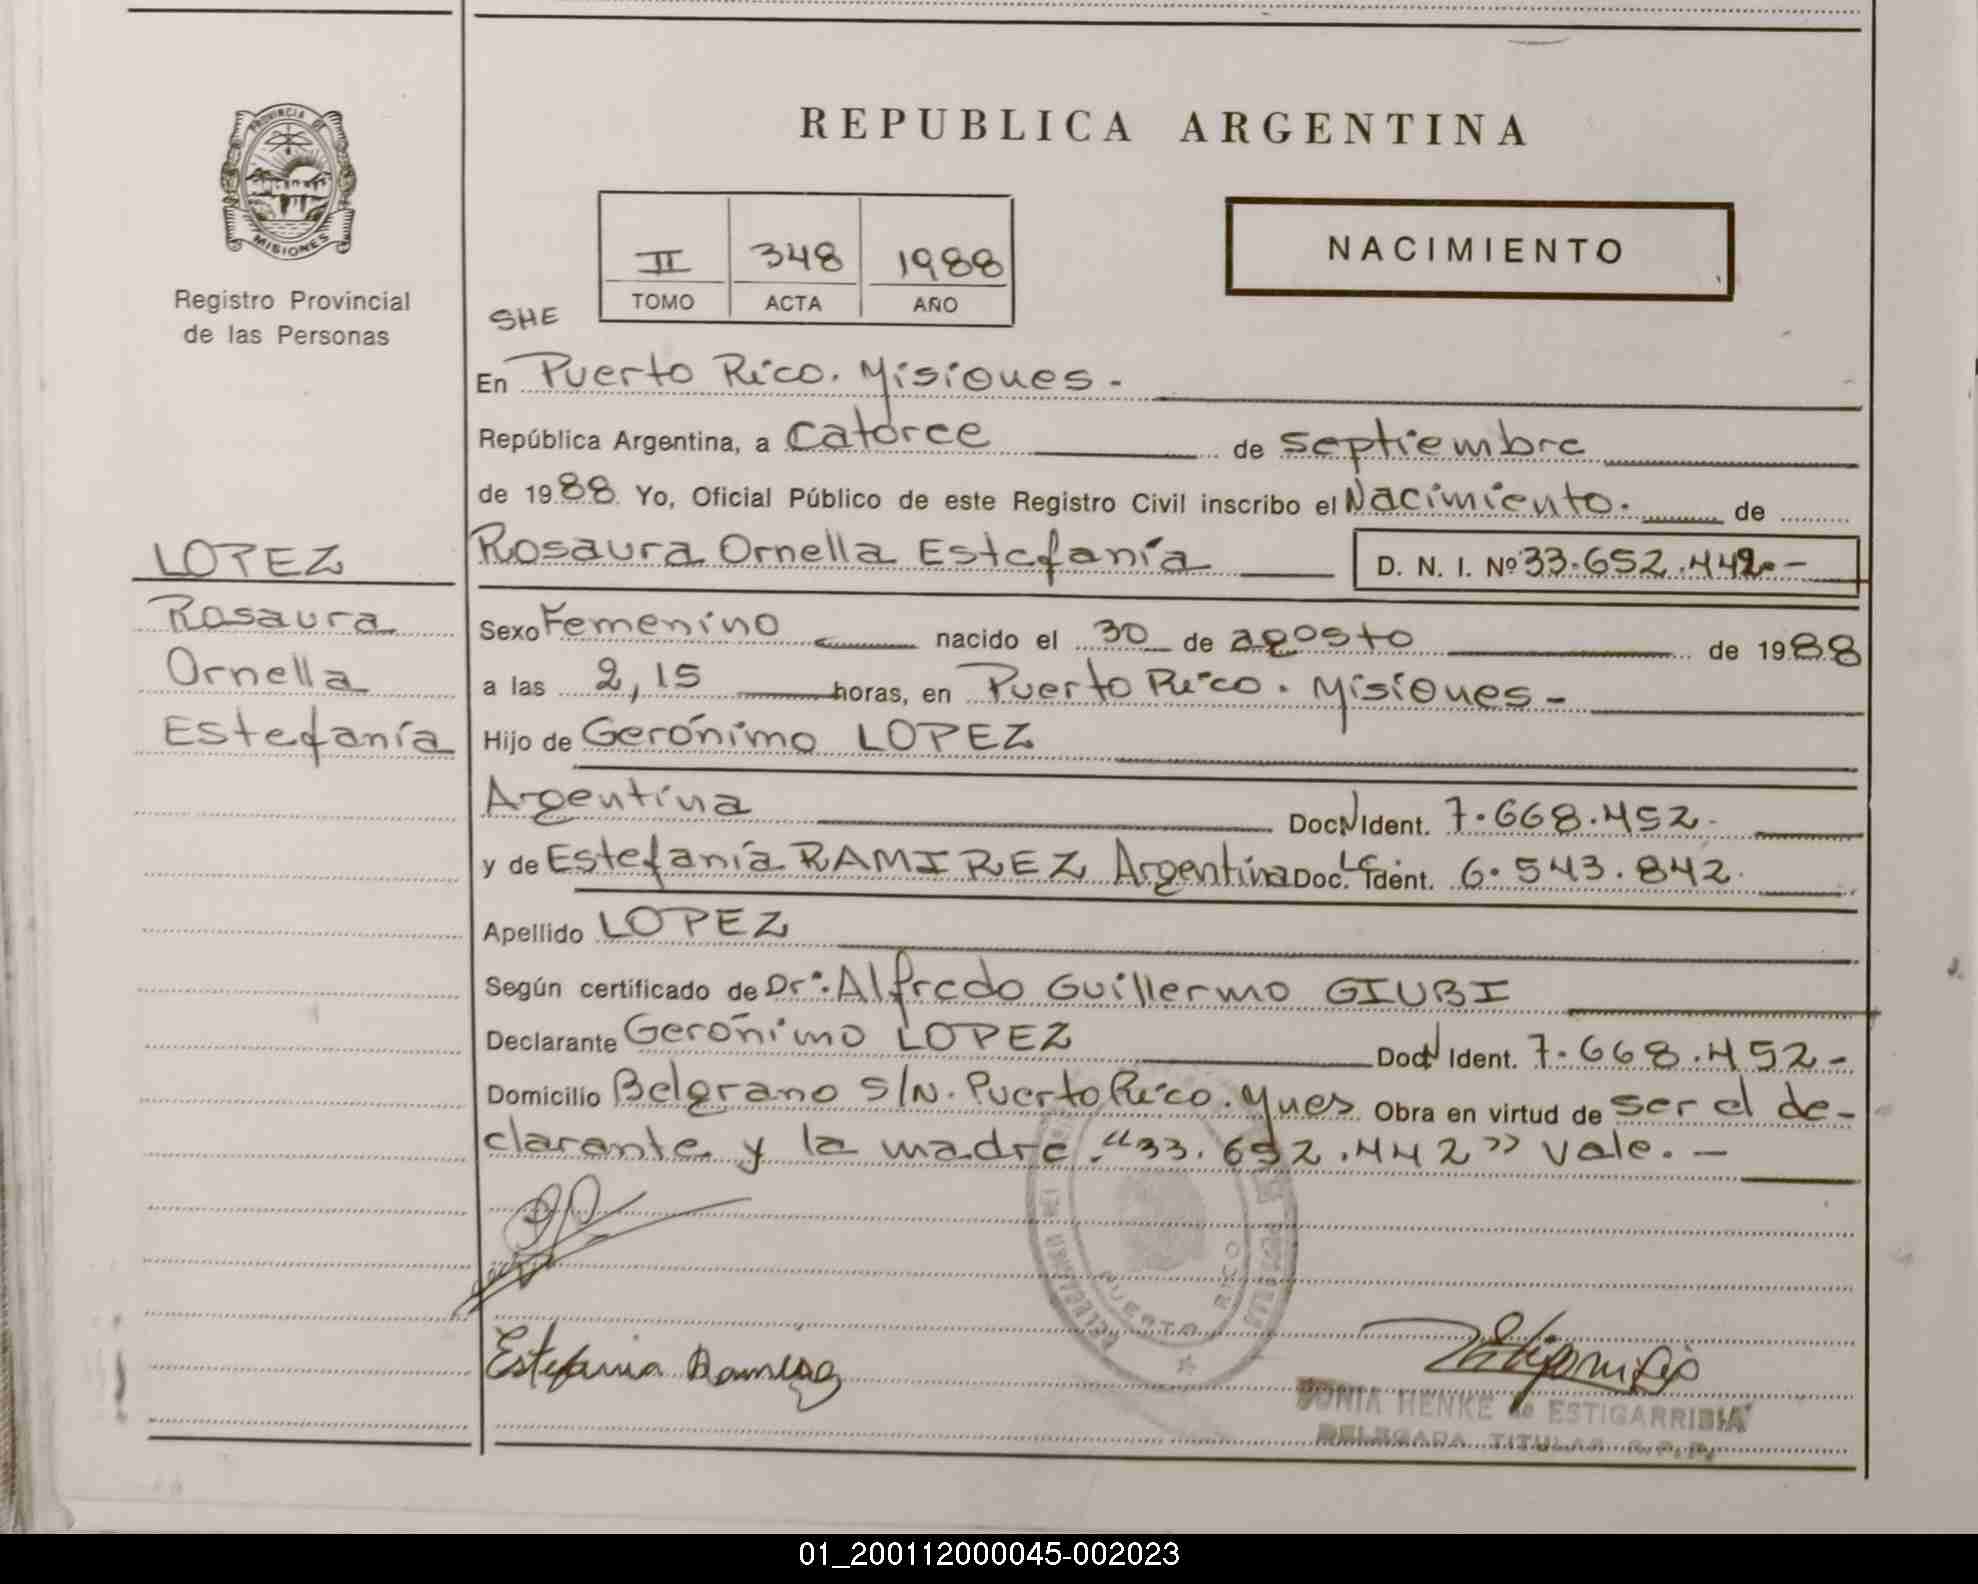 REPUBLICA ARGENTINA
PROVINCIA DE
MISIONES
Registro Provincial
de las Personas
II 348 1988
TOMO ACTA AÑO
NACIMIENTO
SHE
En Puerto Rico. Misiones.
República Argentina, a catorce de septiembre
de 1988 Yo, Oficial Público de este Registro Civil inscribo el Nacimiento. de
LOPEZ
Rosaura
Ornella
Estefanía
Rosaura Ornella Estefanía D. N. I. Nº 33.652.442.-
Sexo Femenino nacido el 30 de agosto de 1988
a las 2,15 horas, en Puerto Rico. Misiones -
Hijo de Gerónimo LOPEZ
Argentina Doc. Ident. 7.668.452.
y de Estefanía RAMIREZ Argentina Doc. LC Ident. 6.543.842.
Apellido LOPEZ
Según certificado de Dr.: Alfredo Guillermo GIUBI
Declarante Gerónimo LOPEZ Doc. Ident. 7.668.452-
Domicilio Belgrano S/N. Puerto Rico. Mnes Obra en virtud de ser el de-
clarante y la madre. "33.652.442" vale. -
PUERTO RICO
Estefania Ramirez
SONIA HENKE de ESTIGARRIBIA
DELEGADA TITULAR R.P.P.
01_200112000045-002023